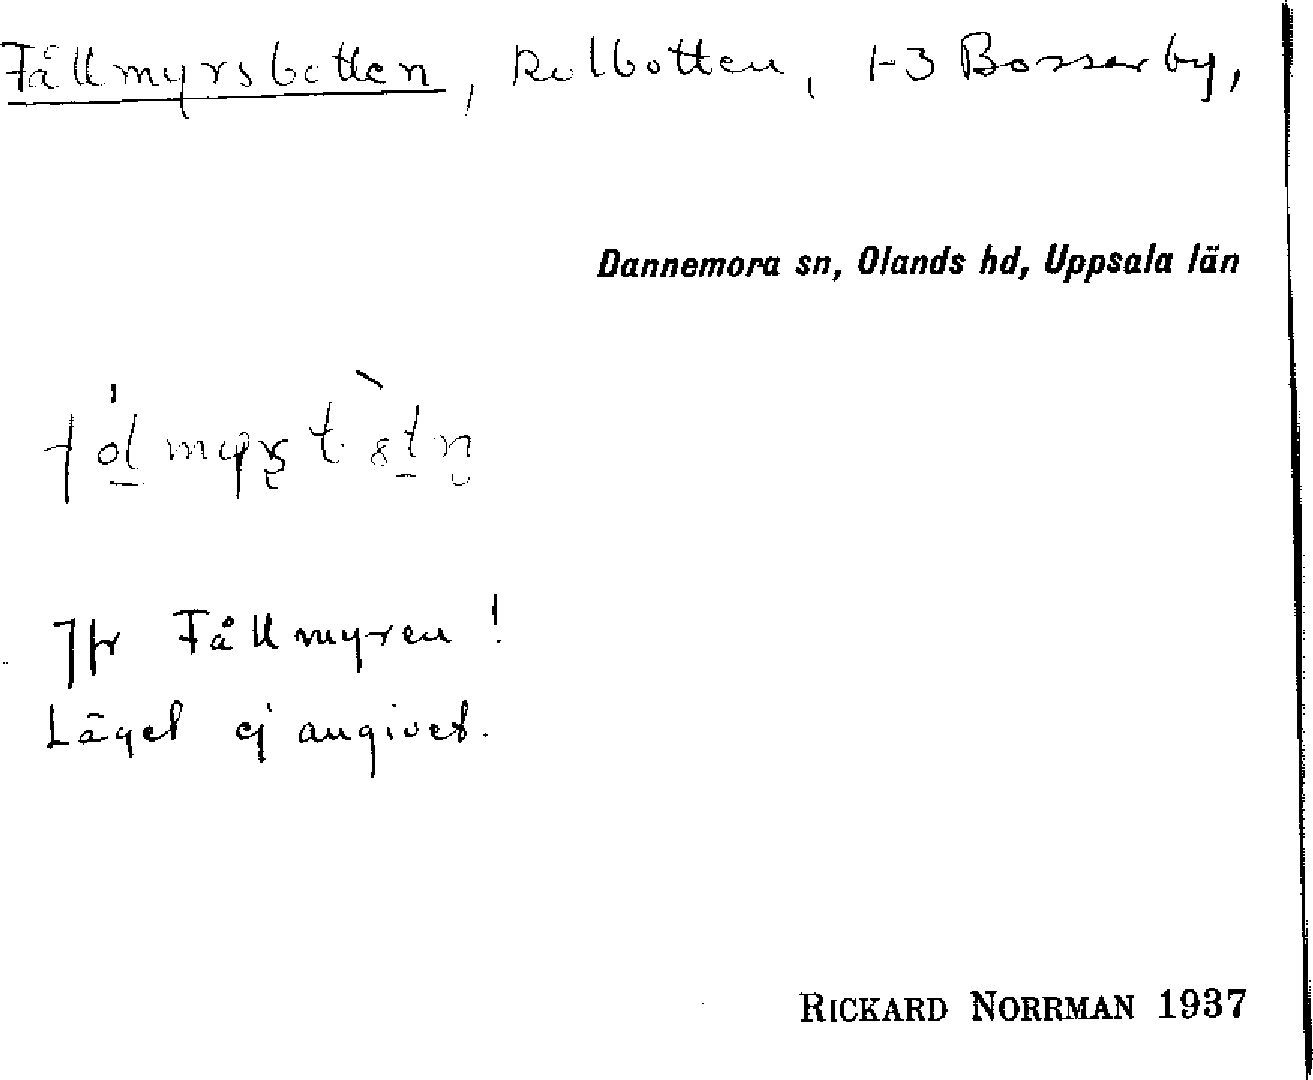 Fållmyrsbotten, kolbotten, 1-3 Bosserby,
Dannemora sn, Olands hd, Uppsala län
Jfr Fållmyren!
Läget ej angivet.
RICKARD NORRMAN 1937